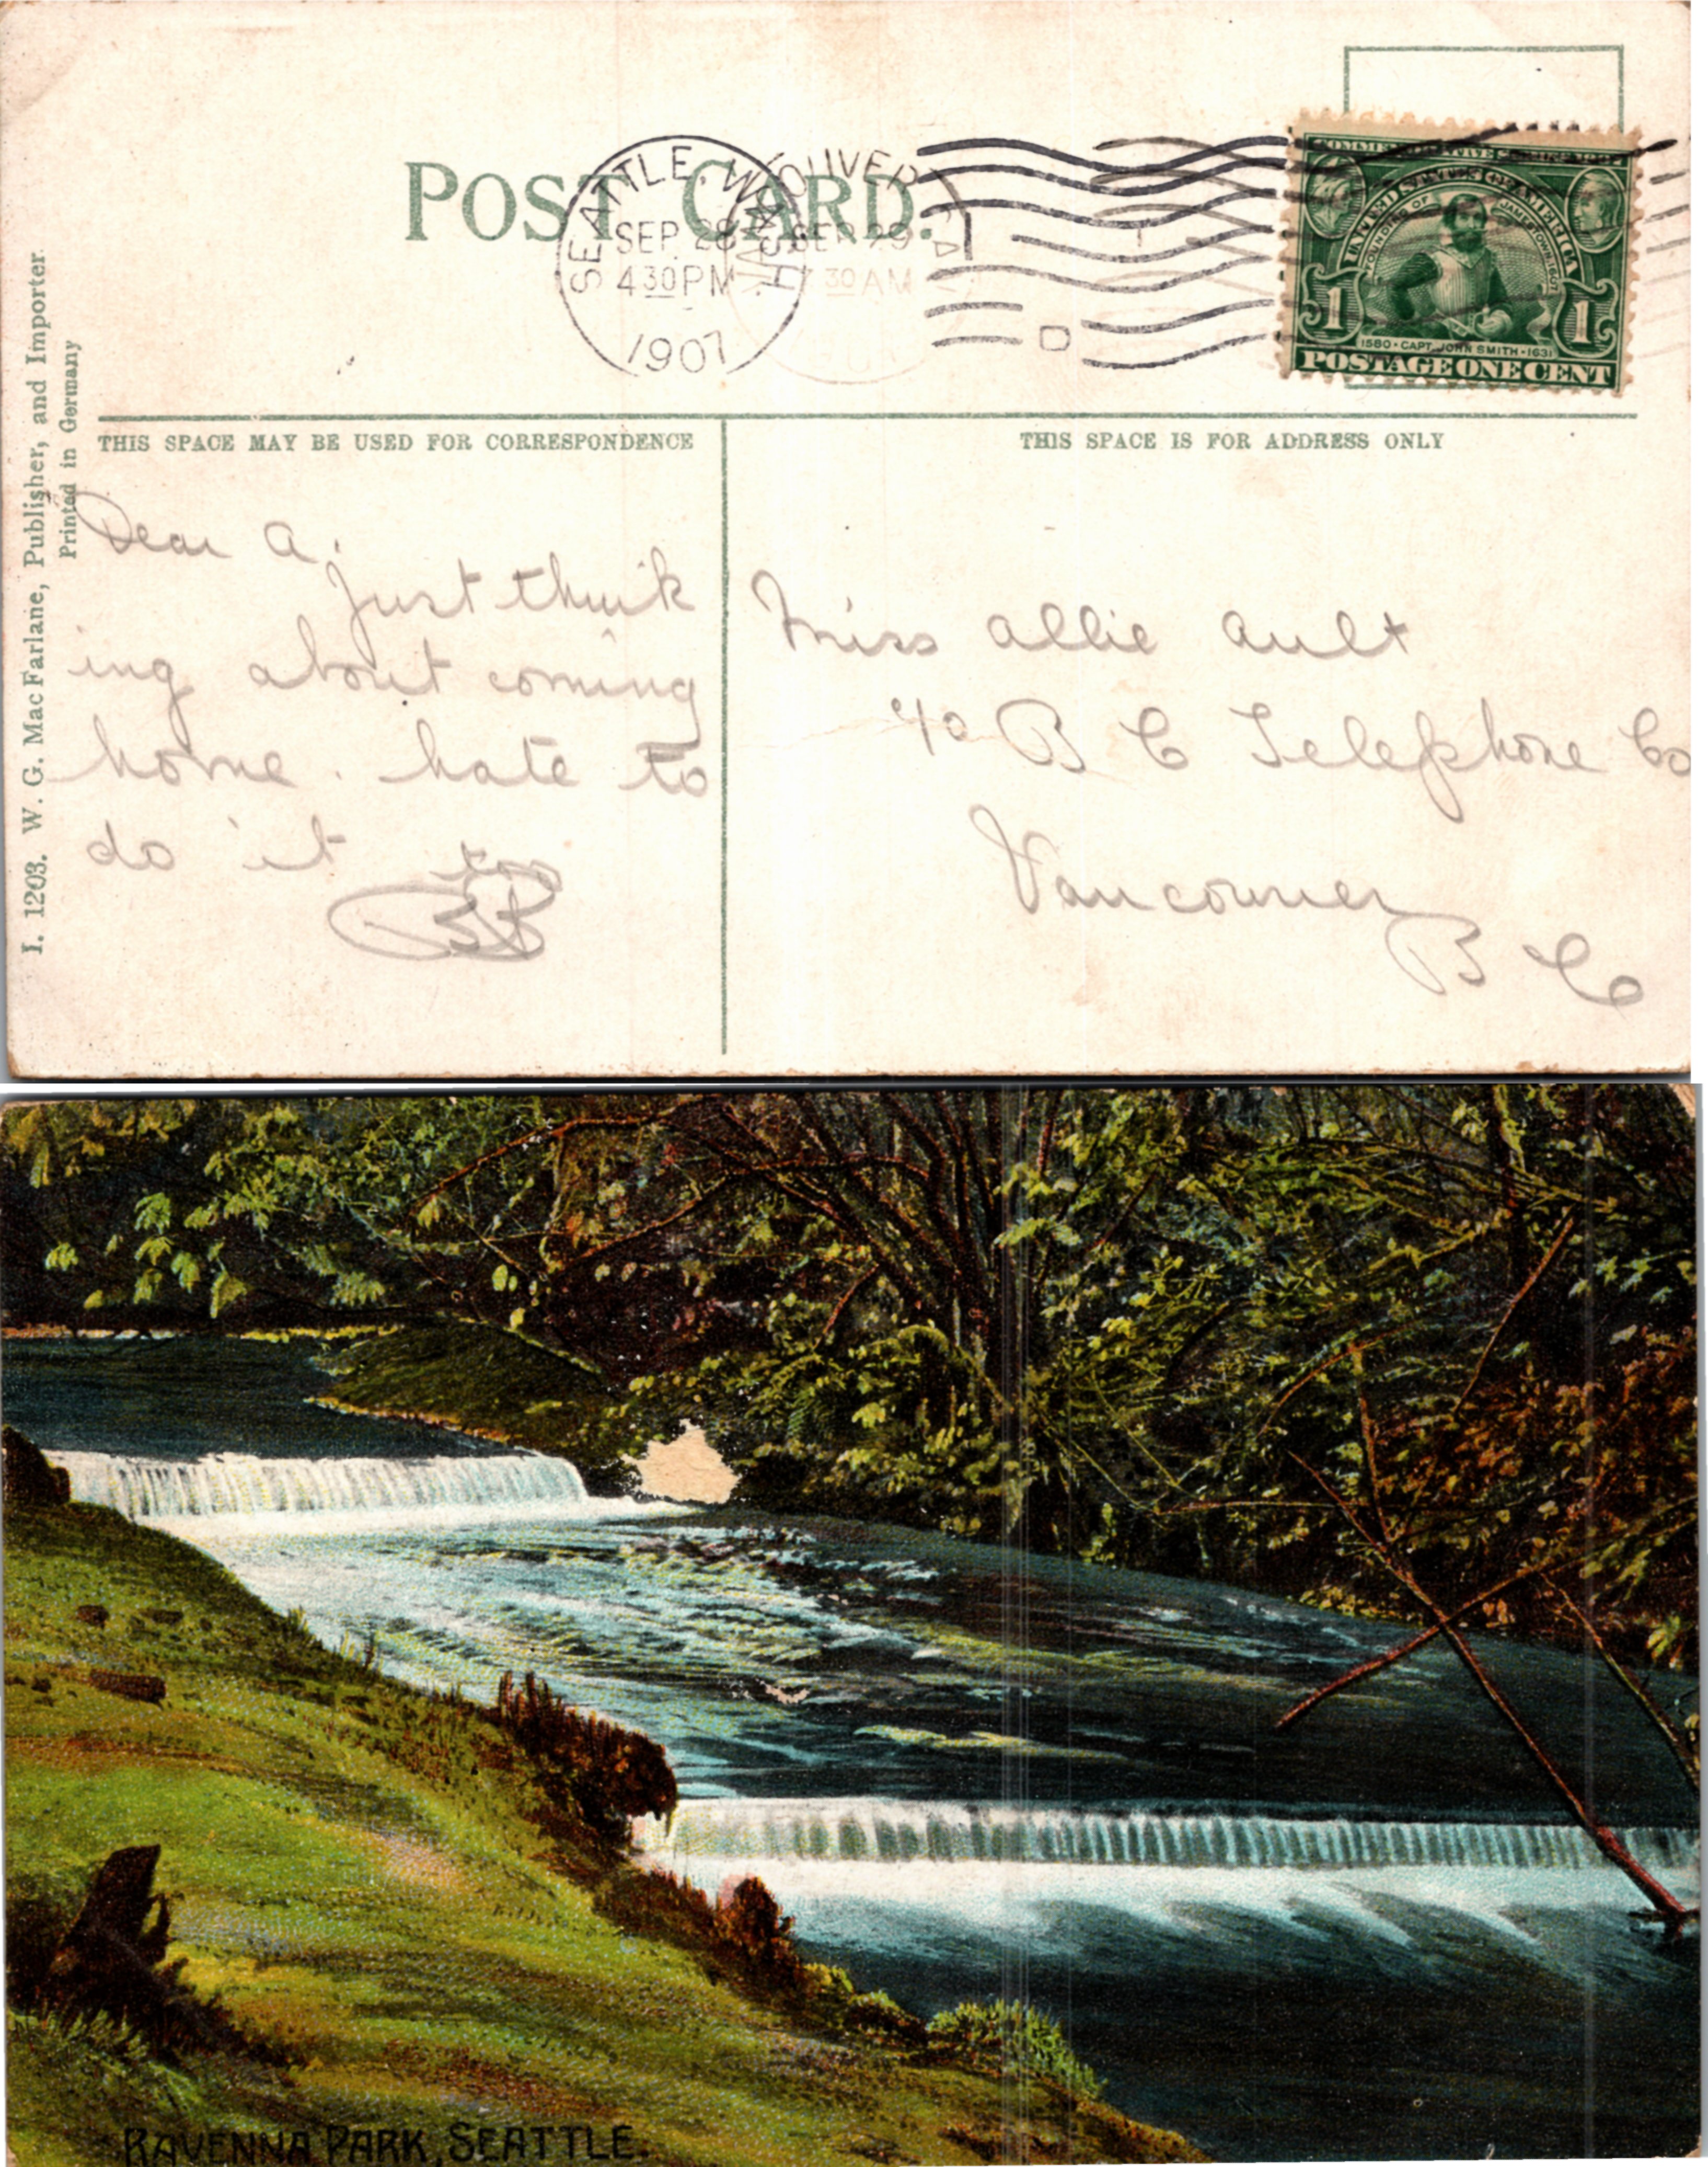 POST CARD.
SEATTLE, WASH.
SEP 28
4 30 PM
1907
VANCOUVER
SEP 29
30 AM
COMMEMORATIVE SERIES 1907
UNITED STATES OF AMERICA
FOUNDER OF JAMESTOWN 1607
1 1
1580 · CAPT. JOHN SMITH · 1631
POSTAGE ONE CENT
THIS SPACE MAY BE USED FOR CORRESPONDENCE
THIS SPACE IS FOR ADDRESS ONLY
I. 1203. W. G. MacFarlane, Publisher, and Importer.
Printed in Germany
Dear A.
Just think
ing about coming
home. hate to
do it too
BB
Miss Allie Ault
c/o B C Telephone Co
Vancouver
B C
RAVENNA PARK, SEATTLE.